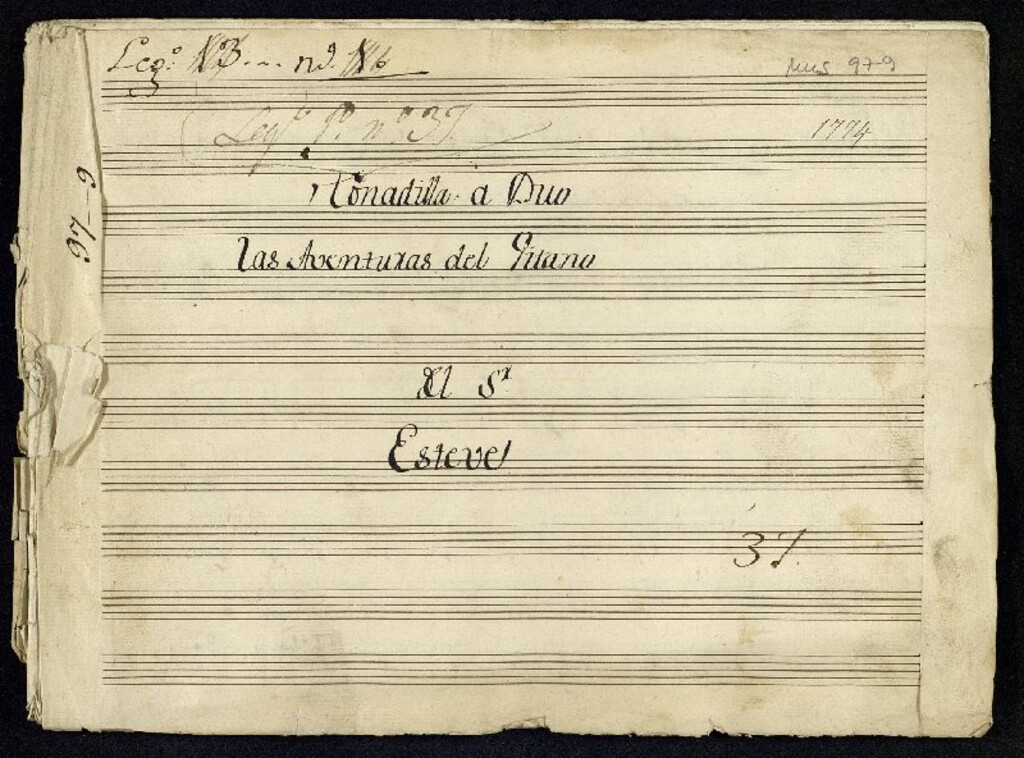 Leg.º 13... nº. 16
Mus 97-9
Leg.º 1º. nº 37.
1774
97-9
Tonadilla. a Duo
las Aventuras del Gitano
Del S.r
Esteve
37.